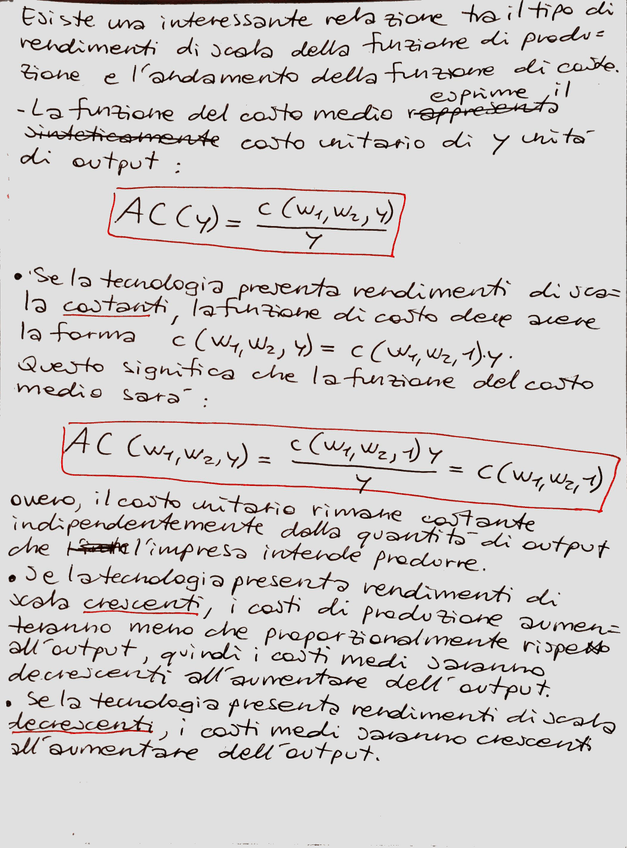 Esiste una interessante relazione tra il tipo di
rendimenti di scala della funzione di produ=
zione e l'andamento della funzione di costo.
esprime il
- La funzione del costo medio rappresenta
sinteticamente costo unitario di y unità
di output :
AC(y) = c(w₁,w₂,y) / y
• Se la tecnologia presenta rendimenti di sca=
la costanti, la funzione di costo deve avere
la forma c(w₁,w₂,y) = c(w₁,w₂,1)·y.
Questo significa che la funzione del costo
medio sarà :
AC(w₁,w₂,y) = c(w₁,w₂,1)y / y = c(w₁,w₂,1)
ovvero, il costo unitario rimane costante
indipendentemente dalla quantità di output
che l'impresa intende produrre.
• Se la tecnologia presenta rendimenti di
scala crescenti, i costi di produzione aumen=
teranno meno che proporzionalmente rispetto
all'output, quindi i costi medi saranno
decrescenti all'aumentare dell'output.
• Se la tecnologia presenta rendimenti di scala
decrescenti, i costi medi saranno crescenti
all'aumentare dell'output.